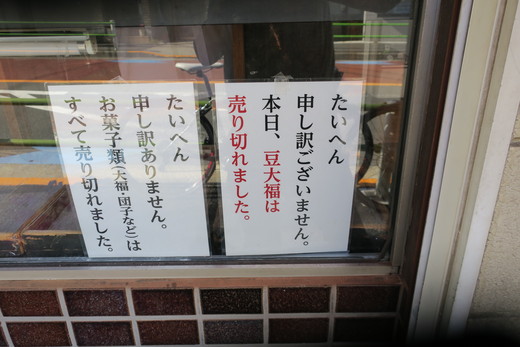 たいへん
申し訳ございません。
本日、豆大福は
売り切れました。
たいへん
申し訳ありません。
お菓子類(大福・団子など)は
すべて売り切れました。